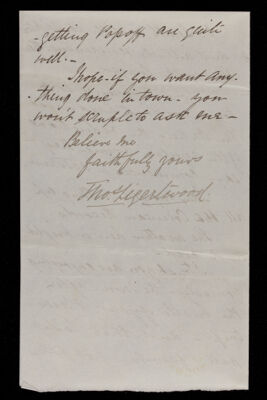 -getting Popoff are quite
well. -
I hope - if you want any
thing done in town - you
won't scruple to ask me -
Believe me
faithfully yours
Thos Ligertwood.